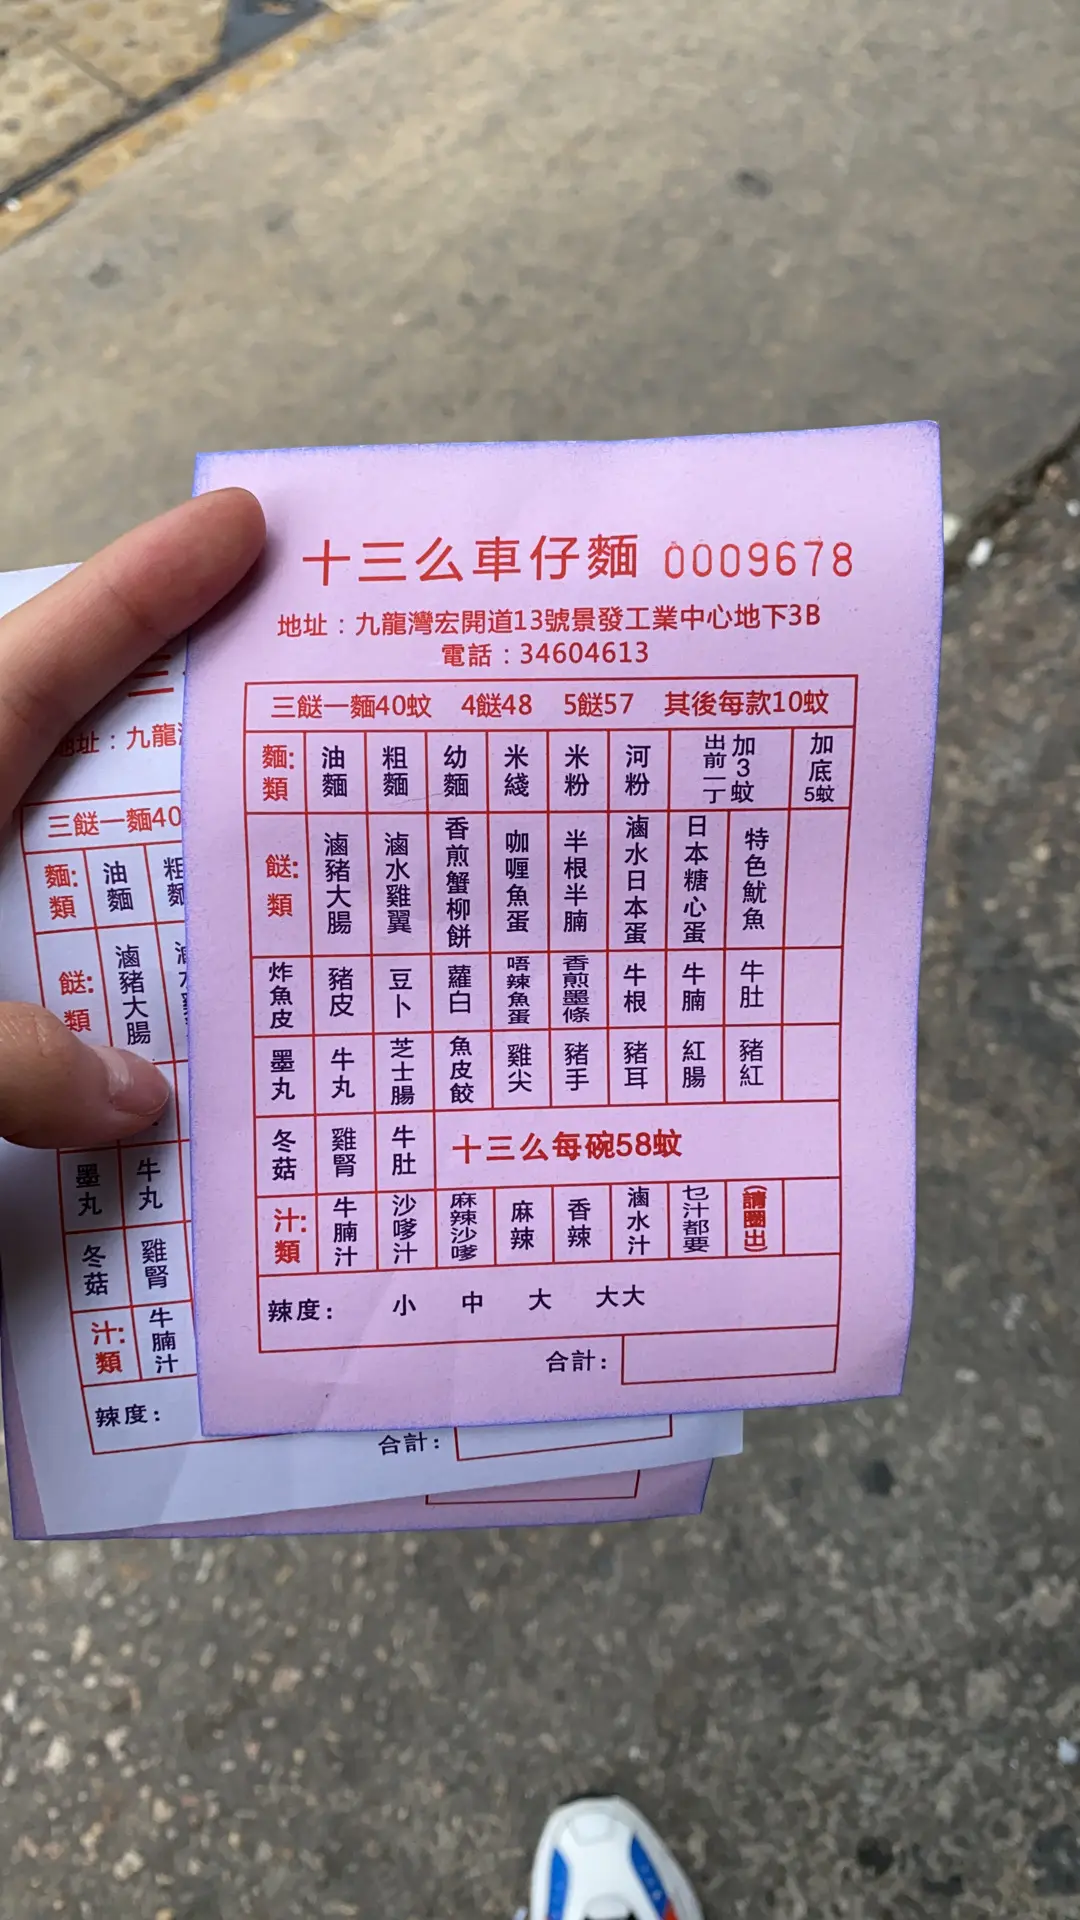 十三么車仔麵 0009678
地址：九龍灣宏開道13號景發工業中心地下3B
電話：34604613
三餸一麵40蚊 4餸48 5餸57 其後每款10蚊
麵類: 油麵 粗麵 幼麵 米綫 米粉 河粉 出前一丁加3蚊 加底5蚊
餸類: 滷豬大腸 滷水雞翼 香煎蟹柳餅 咖喱魚蛋 半根半腩 滷水日本蛋 日本糖心蛋 特色魷魚
炸魚皮 豬皮 豆卜 蘿白 唔辣魚蛋 香煎墨條 牛根 牛腩 牛肚
墨丸 牛丸 芝士腸 魚皮餃 雞尖 豬手 豬耳 紅腸 豬紅
冬菇 雞腎 牛肚 十三么每碗58蚊
汁類: 牛腩汁 沙嗲汁 麻辣沙嗲 麻辣 香辣 滷水汁 乜汁都要 (請圈出)
辣度: 小 中 大 大大
合計:
三
地址：九龍
三餸一麵40
麵類: 油麵 粗麵
餸類: 滷豬大腸
墨丸 牛丸
冬菇 雞腎
汁類: 牛腩汁
辣度:
合計: